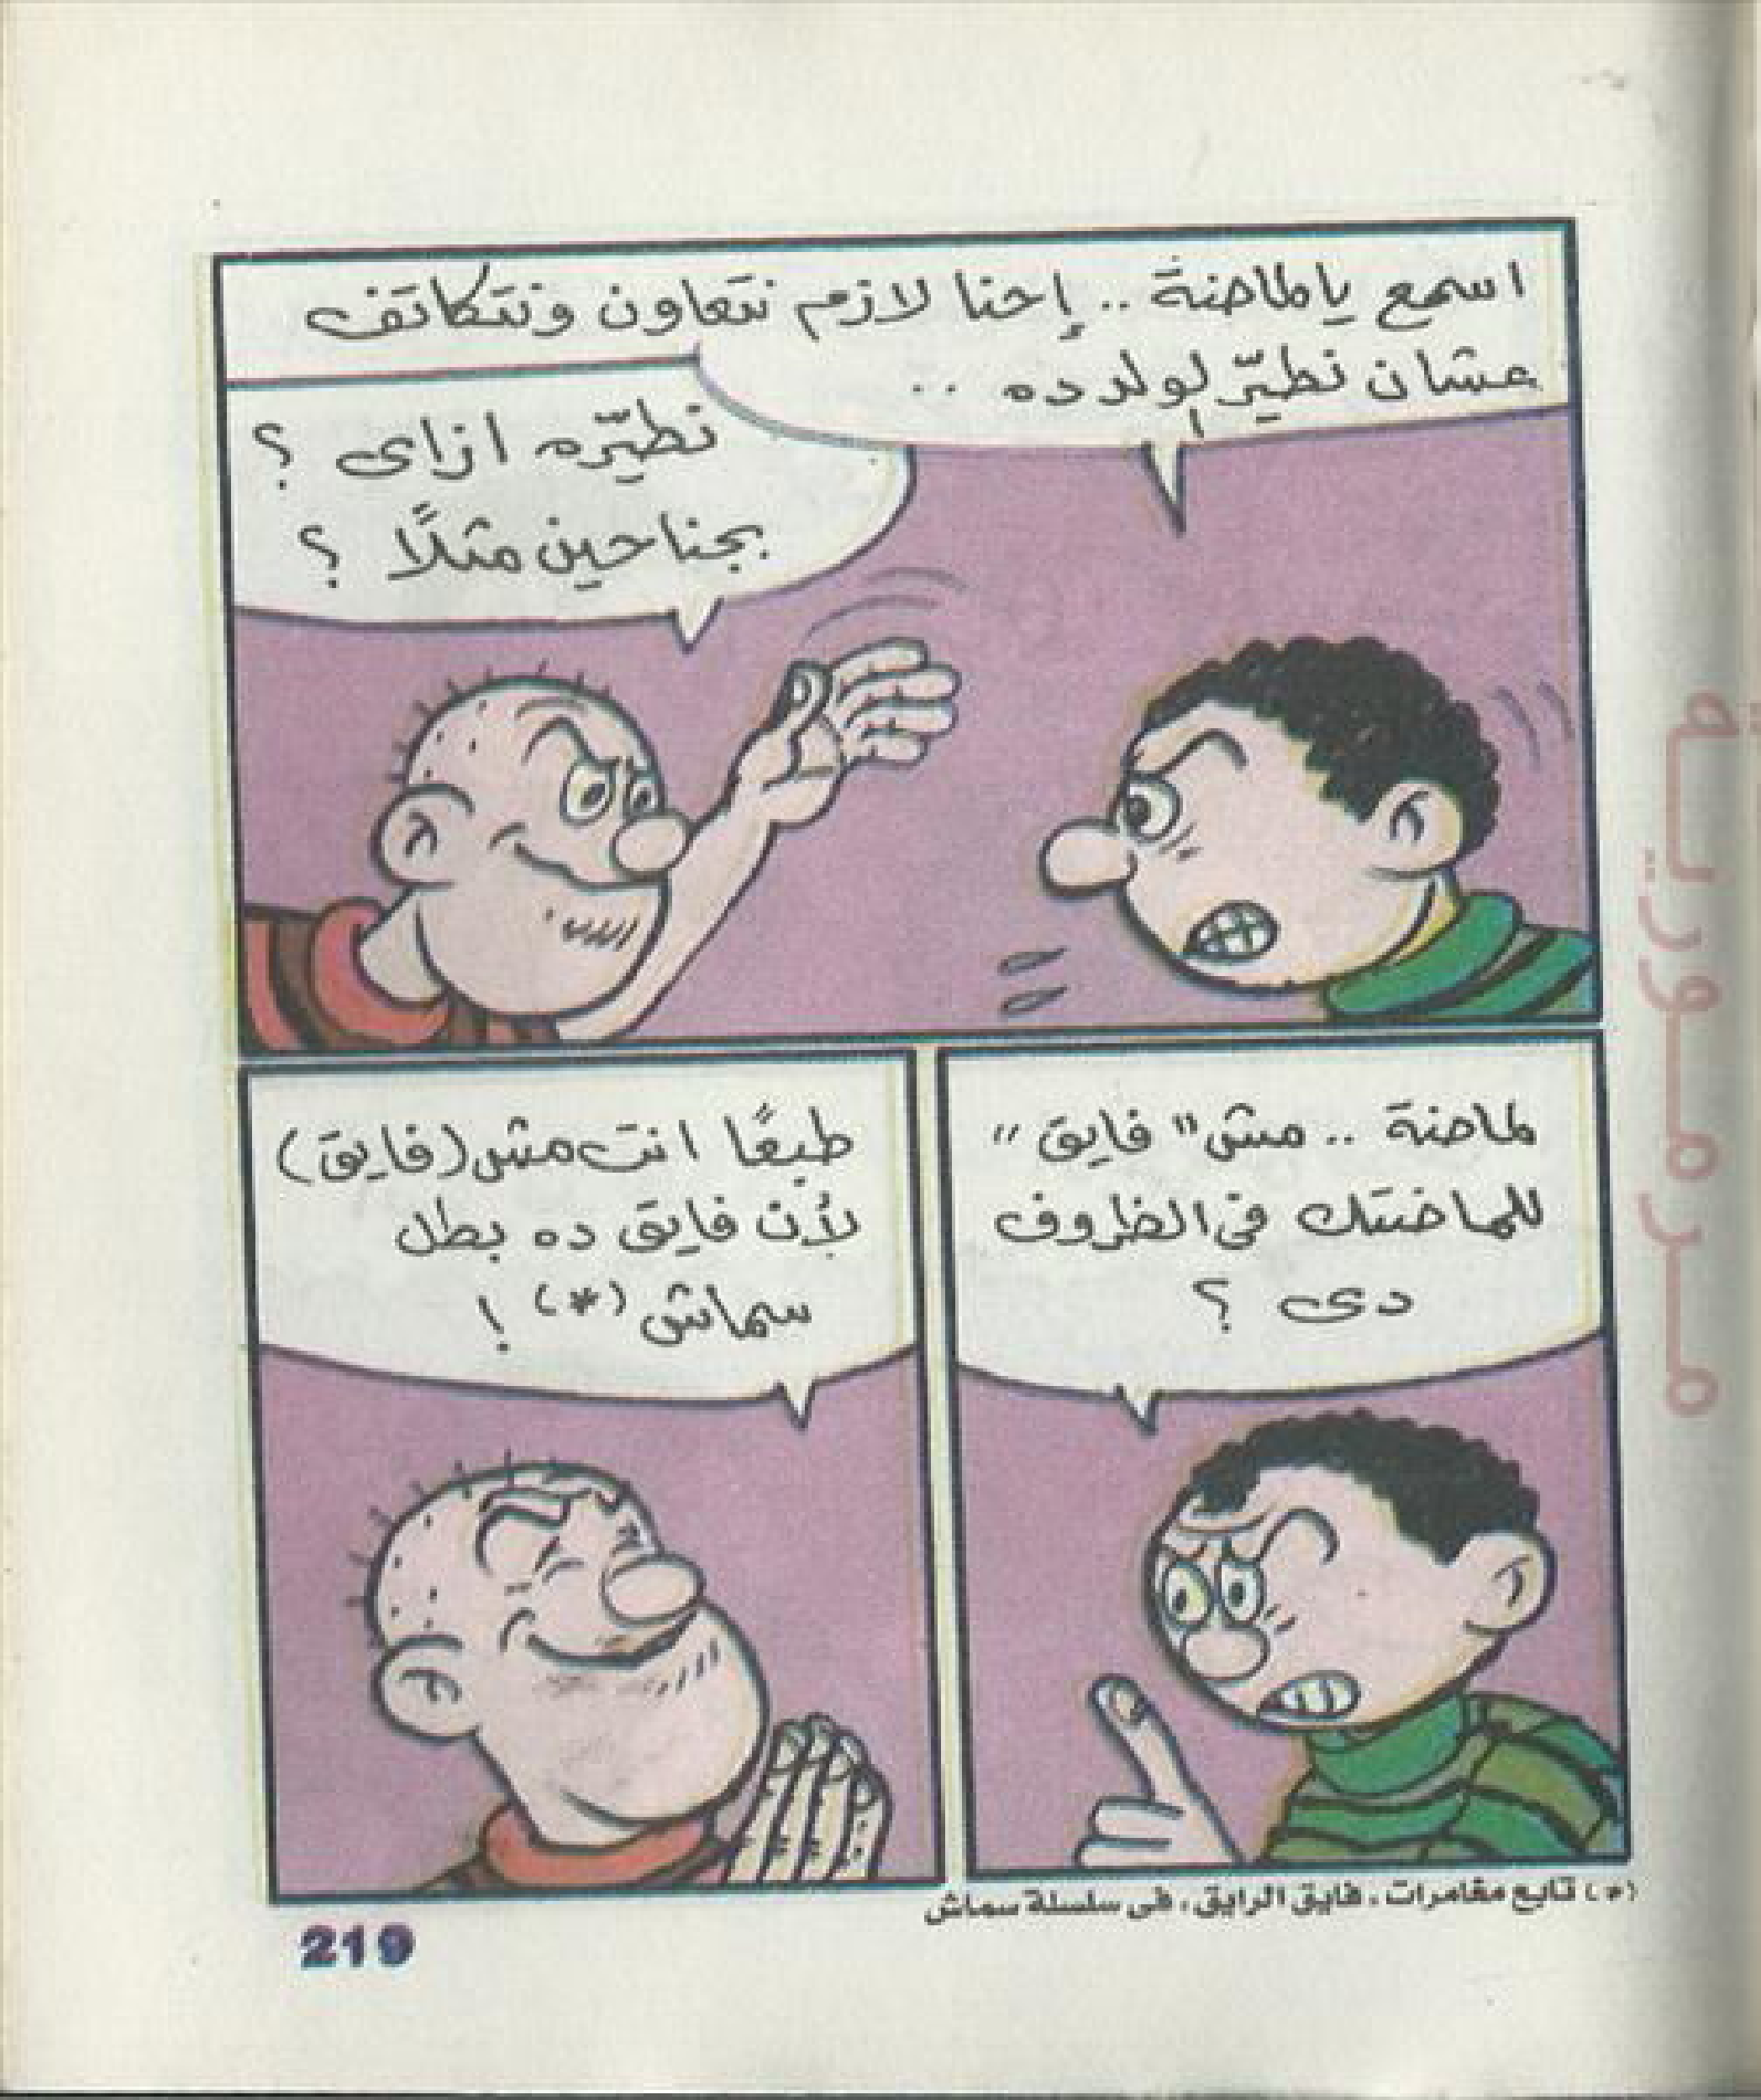 اسمع يا لماضة .. إحنا لازم نتعاون ونتكاتف
عشان نطيّر لولد ده ..
نطيّره ازاى ؟
بجناحين مثلاً ؟
لماضة .. مش "فايق"
للماضتك فى الظروف
دى ؟
طبعًا انت مش (فايق)
لأن فايق ده بطل
سماش (*) !
(*) تابع مغامرات، فايق الرايق، فى سلسلة سماش
219
مرمورية